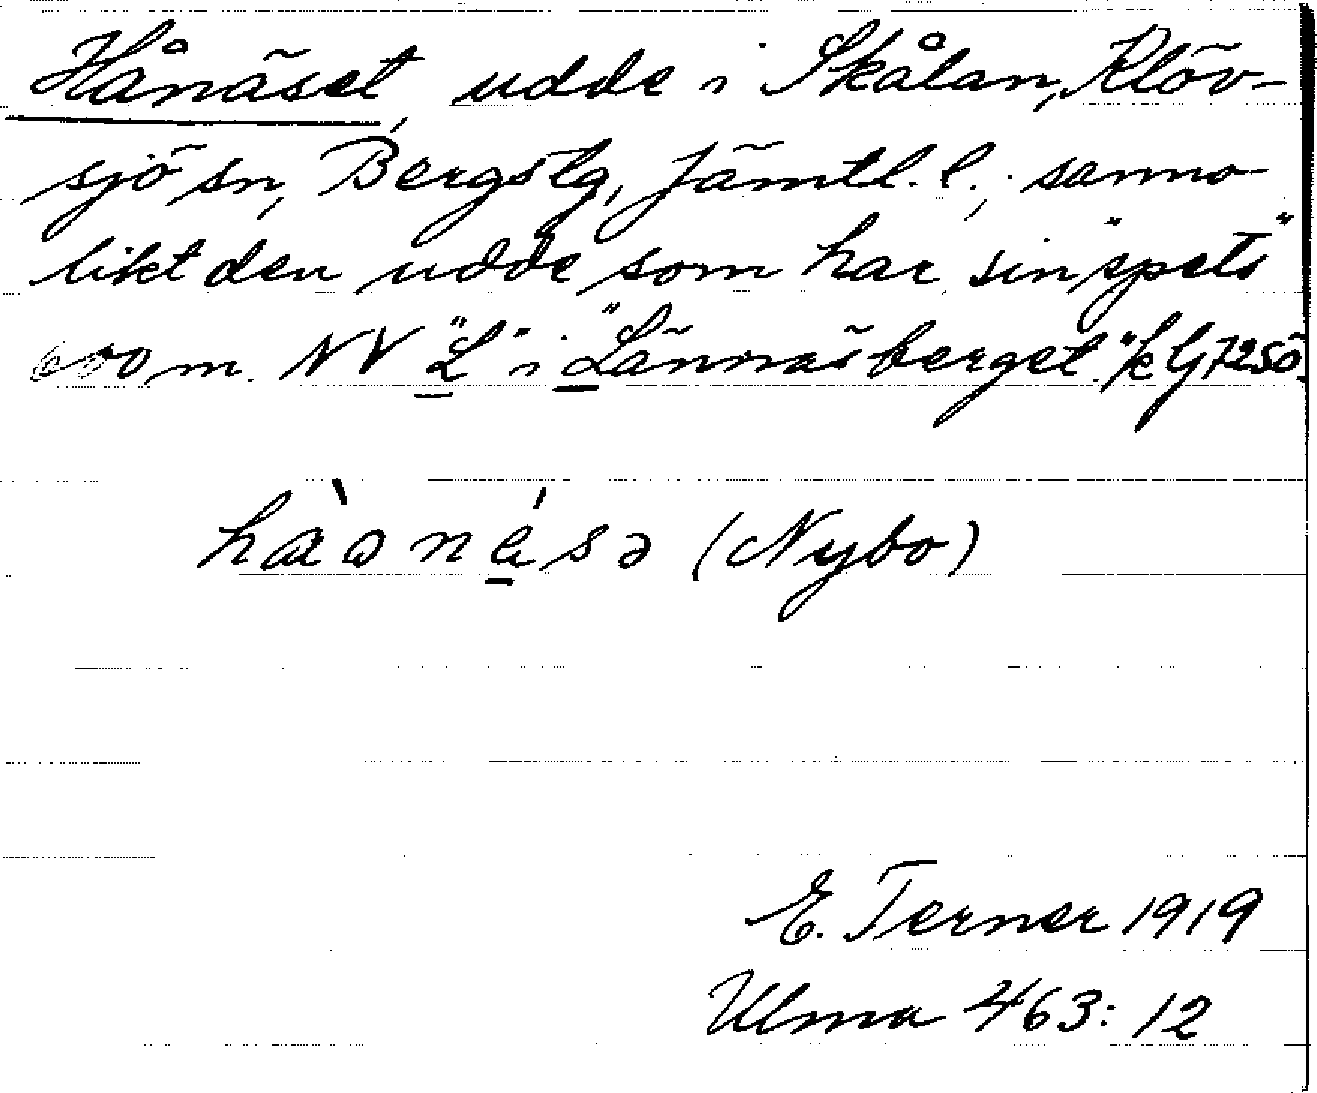 Hånäset, udde i Skålan, Klöv-
sjö sn, Bergs tg, Jämtl. l.; sanno-
likt den udde som har sin "spets"
600 m. NV "L" i "Lännäsberget." /k G 72SÖ.
hàənésə (Nybo)
E. Terner 1919
Ulma 463: 12